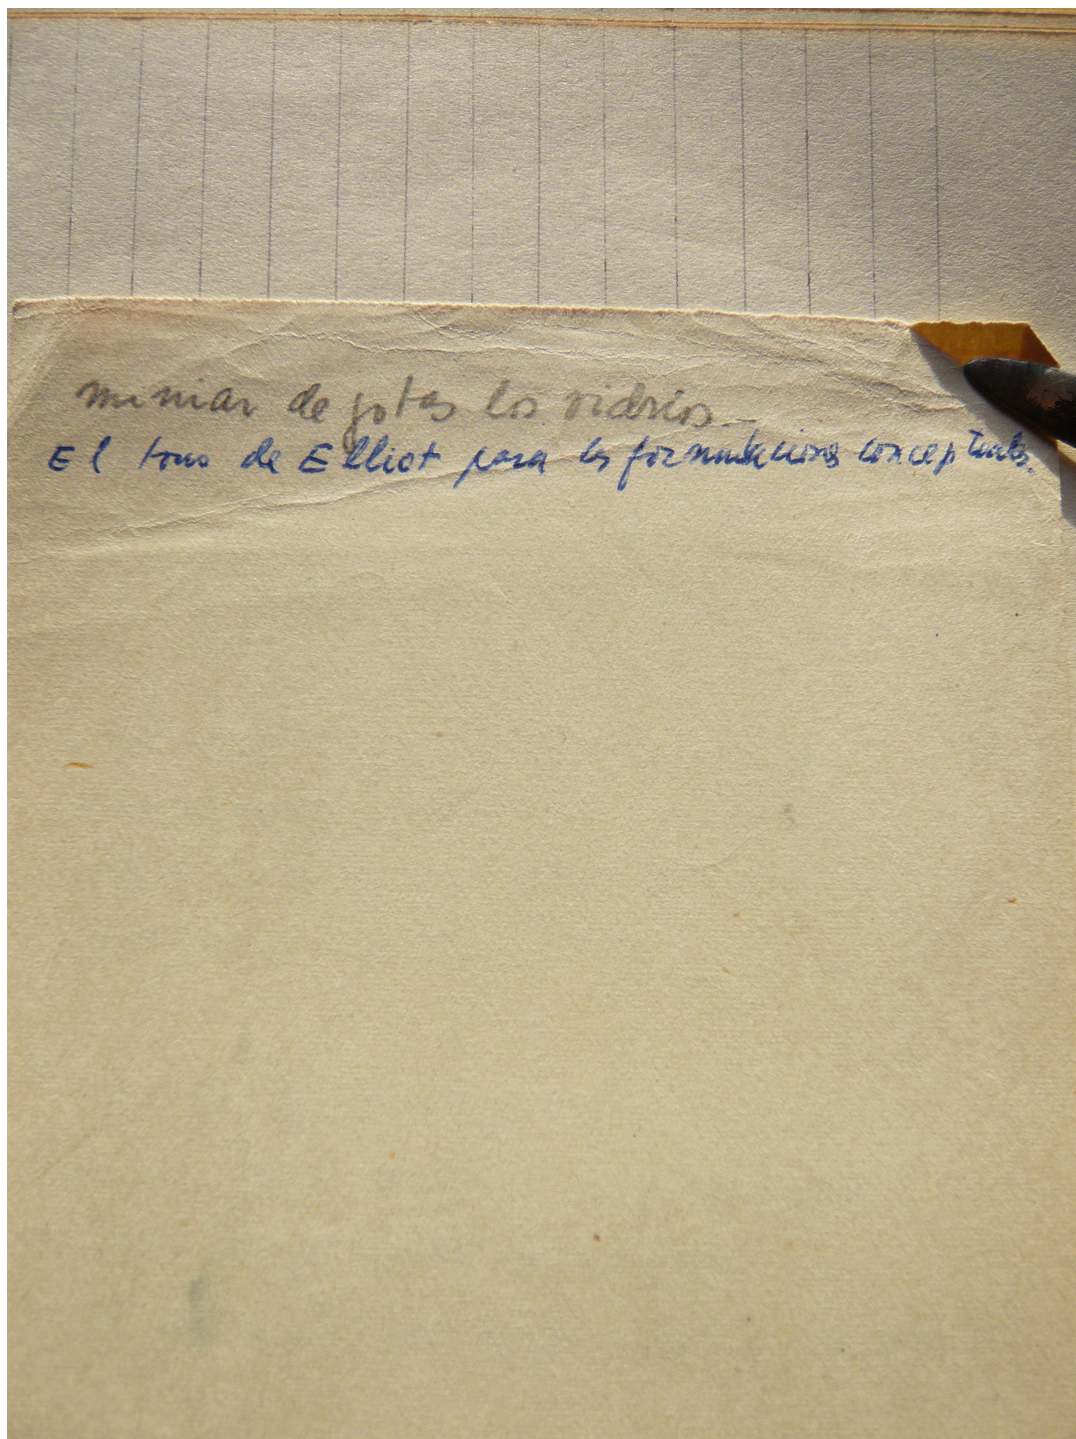 miniar de gotas los vidrios...
El tono de Elliot para las formulaciones conceptuales.